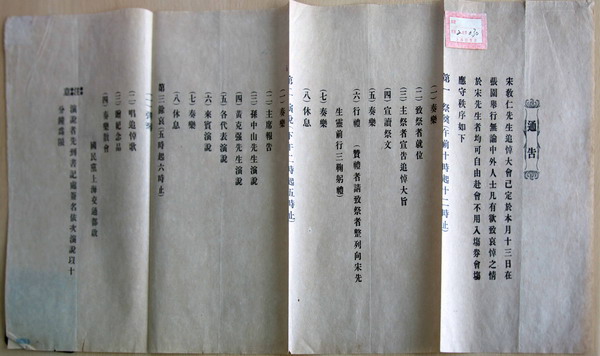 通告
宋教仁先生追悼大會已定於本月十三日在
張園舉行無論中外人士凡有欲致哀悼之情
於宋先生者均可自由赴會不用入場券會場
應守秩序如下
第一 祭奠(午前十時起十二時止)
(一)奏樂
(二)致祭者就位
(三)主祭者宣告追悼大旨
(四)宣讀祭文
(五)奏樂
(六)行禮 (贊禮者請致祭者整列向宋先
生靈前行三鞠躬禮)
(七)奏樂
(八)休息
第二 演說(午後二時起五時止)
(一)奏樂
(二)主席報告
(三)孫中山先生演說
(四)黃克强先生演說
(五)各代表演說
(六)來賓演說
(七)奏樂
(八)休息
第三 餘哀(五時起六時止)
(一)奏樂
(二)唱追悼歌
(三)贈紀念品
(四)奏樂散會
國民黨上海交通部啟
演說者先到書記處簽名依次演說以十
分鐘為限